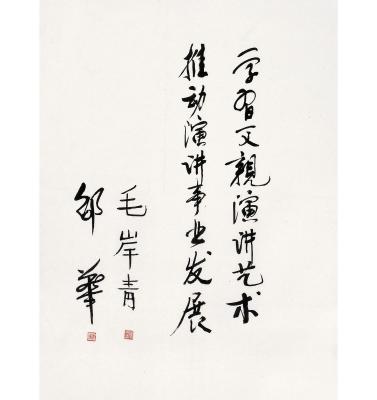 学习父亲演讲艺术
推动演讲事业发展
毛岸青
邵華